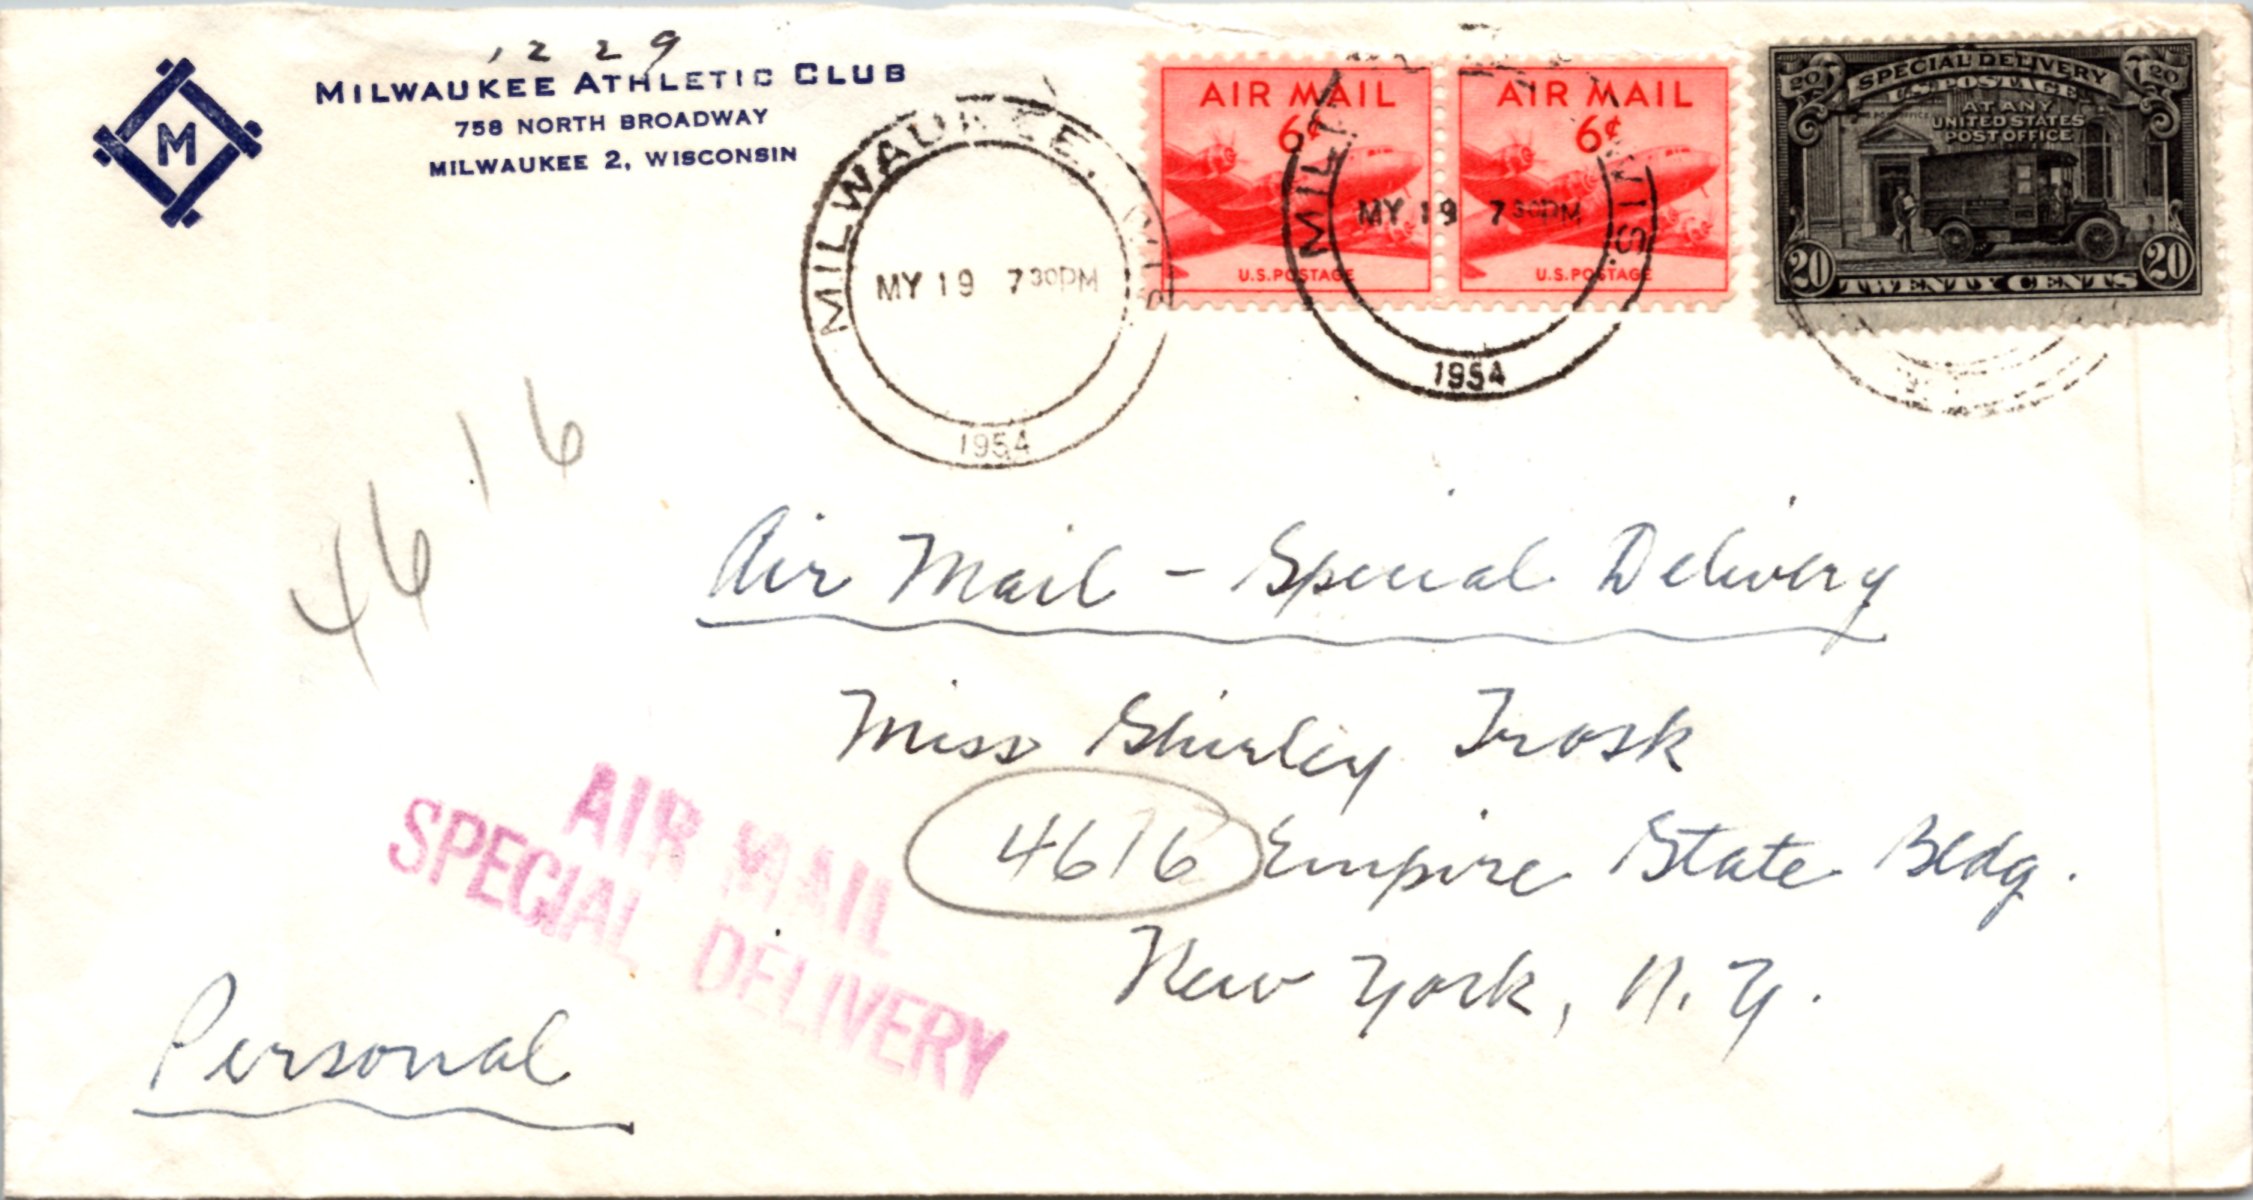 1229
M
MILWAUKEE ATHLETIC CLUB
758 NORTH BROADWAY
MILWAUKEE 2, WISCONSIN
MILWAUKEE, WIS.
MY 19 730PM
1954
AIR MAIL
6¢
U.S. POSTAGE
AIR MAIL
6¢
U.S. POSTAGE
MILWAUKEE, WIS.
MY 19 730PM
1954
20 SPECIAL DELIVERY 20
U.S. POSTAGE
AT ANY
UNITED STATES
POST OFFICE
20 TWENTY CENTS 20
4616
Air Mail - Special Delivery
Miss Shirley Trosk
4616 Empire State Bldg.
New York, N.Y.
AIR MAIL
SPECIAL DELIVERY
Personal